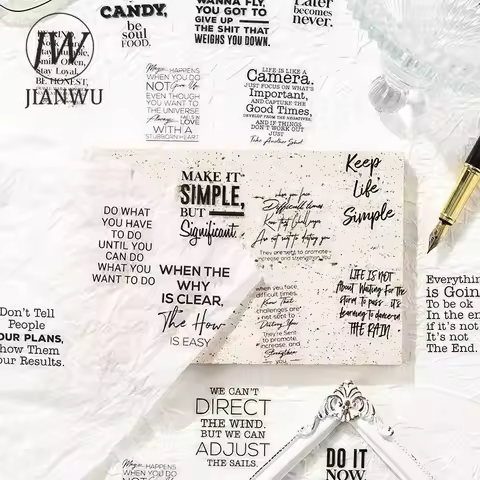 CANDY,
be
soul
FOOD.
WANNA FLY,
YOU GOT TO
GIVE UP
THE SHIT THAT
WEIGHS YOU DOWN.
Later
becomes
never.
JW
JIANWU
Stay Loyal.
BE HONEST,
Magic HAPPENS
WHEN YOU DO
NOT Give Up
EVEN THOUGH
YOU WANT TO
THE UNIVERSE
Always
FALLS IN
LOVE
WITH A
STUBBORN HEART
LIFE IS LIKE A
Camera.
JUST FOCUS ON WHAT'S
Important,
AND CAPTURE THE
Good Times,
DEVELOP FROM THE NEGATIVES,
AND IF THINGS
DON'T WORK OUT
JUST
Take Another Shot
MAKE IT
SIMPLE,
BUT
Significant.
Keep
Life
Simple
DO WHAT
YOU HAVE
TO DO
UNTIL YOU
CAN DO
WHAT YOU
WANT TO DO
when you face
Difficult times
Know that Challenges
Are not sent to destroy you
They are sent to promote
increase and strengthen you
WHEN THE
WHY
IS CLEAR,
The How
IS EASY
when you face
difficult times,
Know That
challenges are
not sent to
Destroy You
they're Sent
to promote,
increase, and
Strengthen
you
LIFE IS NOT
About Waiting For The
storm To pass.. it's
learning to dance in
THE RAIN
Everything
is Going
To be ok
In the en
if it's not
It's not
The End.
Don't Tell
People
OUR PLANS,
how Them
our Results.
WE CAN'T
DIRECT
THE WIND.
BUT WE CAN
ADJUST
THE SAILS.
DO IT
NOW.
Magic HAPPENS
WHEN YOU DO
NOT Give Up